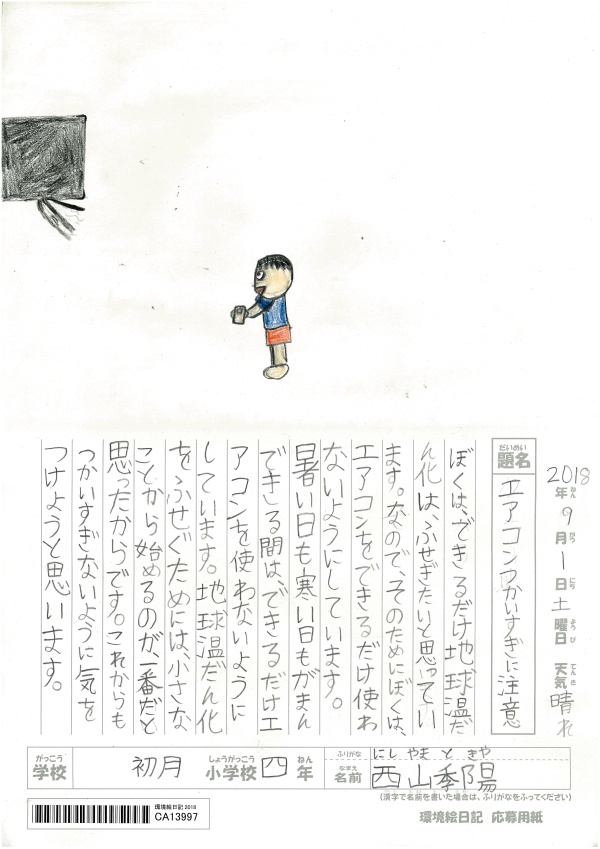 2018年9月1日土曜日 天気晴れ
ねん がつ にち ようび てんき
だいめい
題名
エアコンつかいすぎに注意
ぼくは、できるだけ地球温だ
ん化は、ふせぎたいと思ってい
ます。なので、そのためにぼくは、
エアコンをできるだけ使わ
ないようにしています。
暑い日も寒い日もがまん
できる間は、できるだけエ
アコンを使わないように
しています。地球温だん化
をふせぐためには、小さな
ことから始めるのが、一番だと
思ったからです。これからも
つかいすぎないように気を
つけようと思います。
がっこう しょうがっこう ねん
学校 初月小学校四年
ふりがな にし やま と きや
なまえ
名前 西山季陽
(漢字で名前を書いた場合は、ふりがなをふってください)
環境絵日記 2018
CA13997
環境絵日記 応募用紙